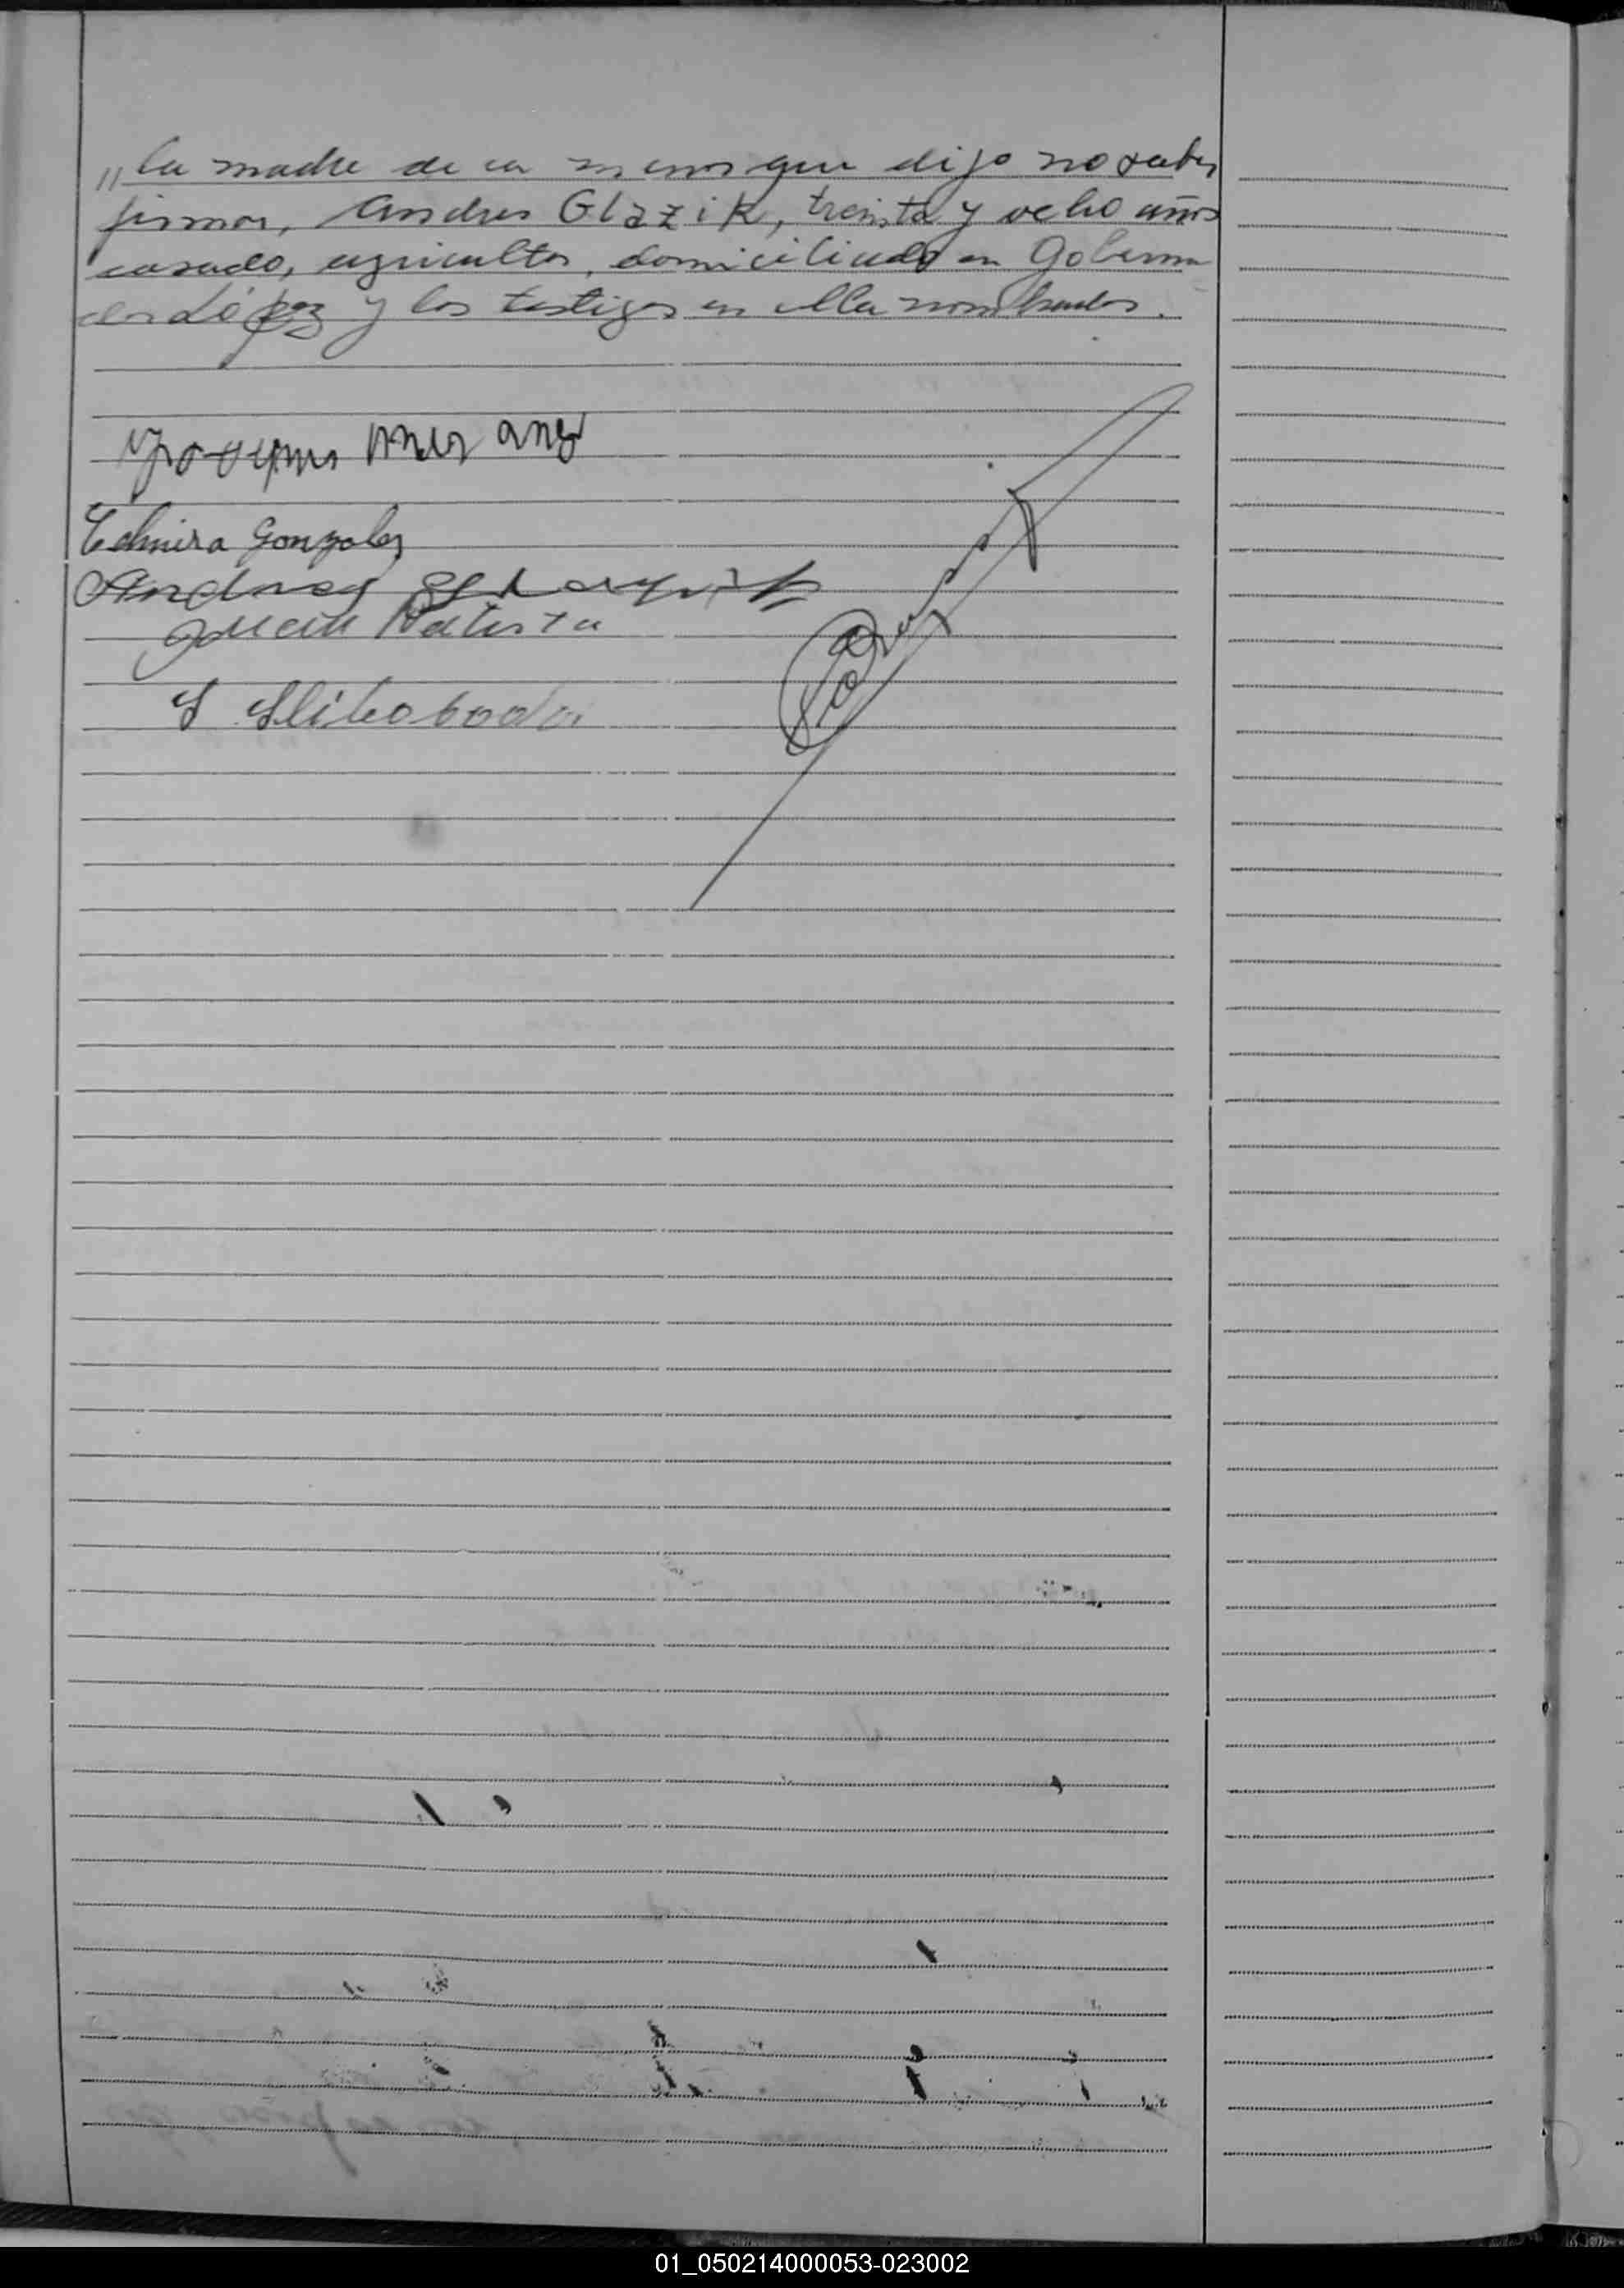 "la madre de la menor que dijo no saber
firmar, Andres Glazik, treinta y ocho años
casado, agricultor, domiciliado en Goberna
dor López y los testigos en ella nombrados.
Edmira Gonzalez
Juan Batista
01_050214000053-023002